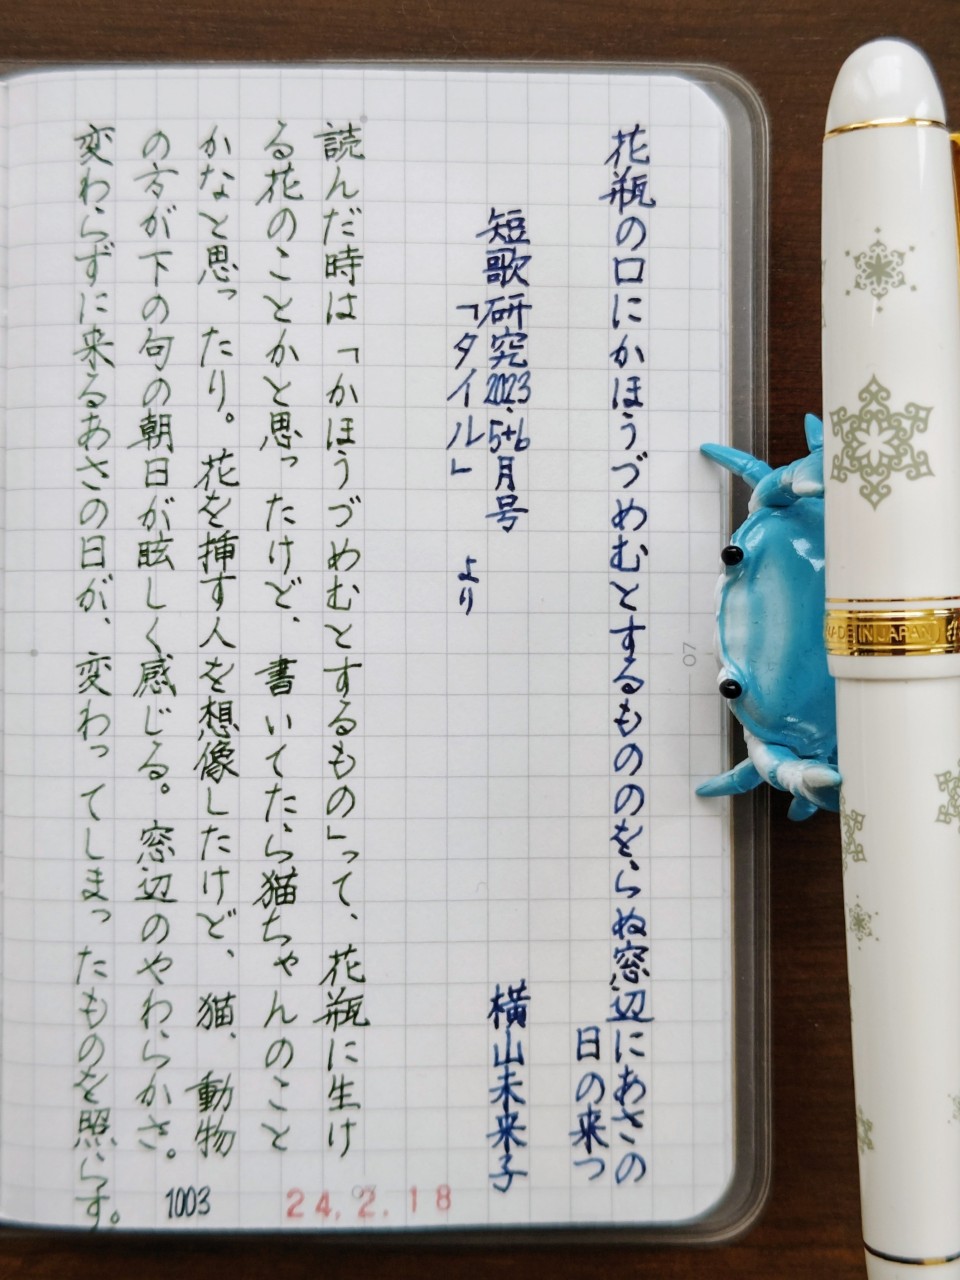 花瓶の口にかほうづめむとするもののをらぬ窓辺にあさの
日の来つ
短歌研究2023.5+6月号
「タイル」より
横山未来子
読んだ時は「かほうづめむとするもの」って、花瓶に生け
る花のことかと思ったけど、書いてたら猫ちゃんのこと
かなと思ったり。花を挿す人を想像したけど、猫、動物
の方が下の句の朝日が眩しく感じる。窓辺のやわらかさ。
変わらずに来るあさの日が、変わってしまったものを照らす。
1003
24.2.18
07
MADE IN JAPAN